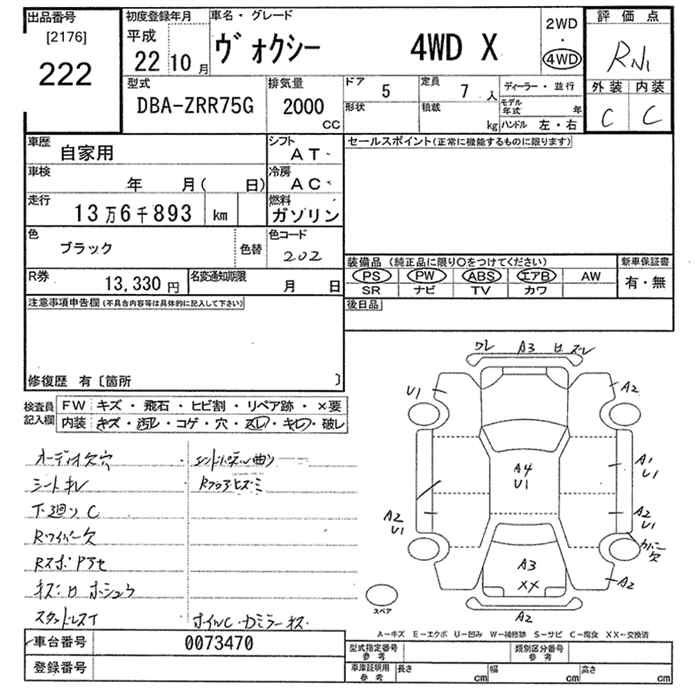 出品番号 初度登録年月 車名・グレード 2WD 評価点
[2176] 平成 ・
222 22年10月 ヴォクシー 4WD X 4WD
型式 排気量 ドア 5 定員 7人 ディーラー・並行 外装 内装
DBA-ZRR75G 2000cc 形状 積載 kg モデル年式 年 C C
ハンドル 左・右
車歴 自家用 シフト AT セールスポイント(正常に機能するものに限ります)
車検 年 月( 日) 冷房 AC
走行 13万6千893 km 燃料 ガソリン
色 ブラック 色替 色コード 202
装備品(純正品に限り○をつけてください) 新車保証書
PS PW ABS エアB AW 有・無
SR ナビ TV カワ
R券 13,330円 名変通知期限 月 日
後日品
注意事項申告欄(不具合内容等は具体的に記入して下さい)
修復歴 有〔箇所 〕
検査員記入欄 FW キズ・飛石・ヒビ割・リペア跡・×要
内装 キズ・汚レ・コゲ・穴・スレ・キレ・破レ
A3
U1 A2
オーディオ欠穴
シートキレ A4 U1 A1 U1
下廻リC
Rワイパー欠 A2 U1 カバー欠
A3 XX A2
スタッドレス
A2
スペア
A-キズ E-エクボ U-凹み W-補修跡 S-サビ C-腐食 XX-交換済
車台番号 0073470
登録番号
型式指定番号 参考 類別区分番号 参考
車庫証明用 参考 長さ cm 幅 cm 高さ cm